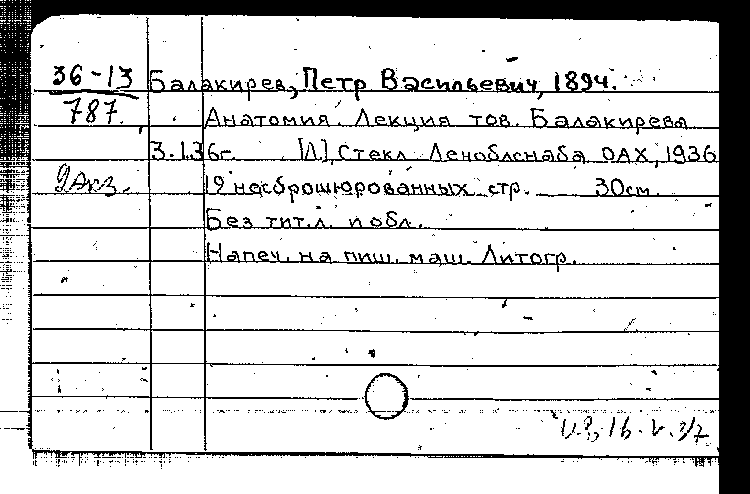 36-13 Балакирев, Петр Васильевич, 1894.
787. Анатомия. Лекция тов. Балакирева
3.I.36г. [Л], Стекл. Леноблснаба ОАХ, 1936
2 экз. 19 несброшюрованных стр. 30см.
Без тит.л. и обл.
Напеч. на пиш. маш. Литогр.